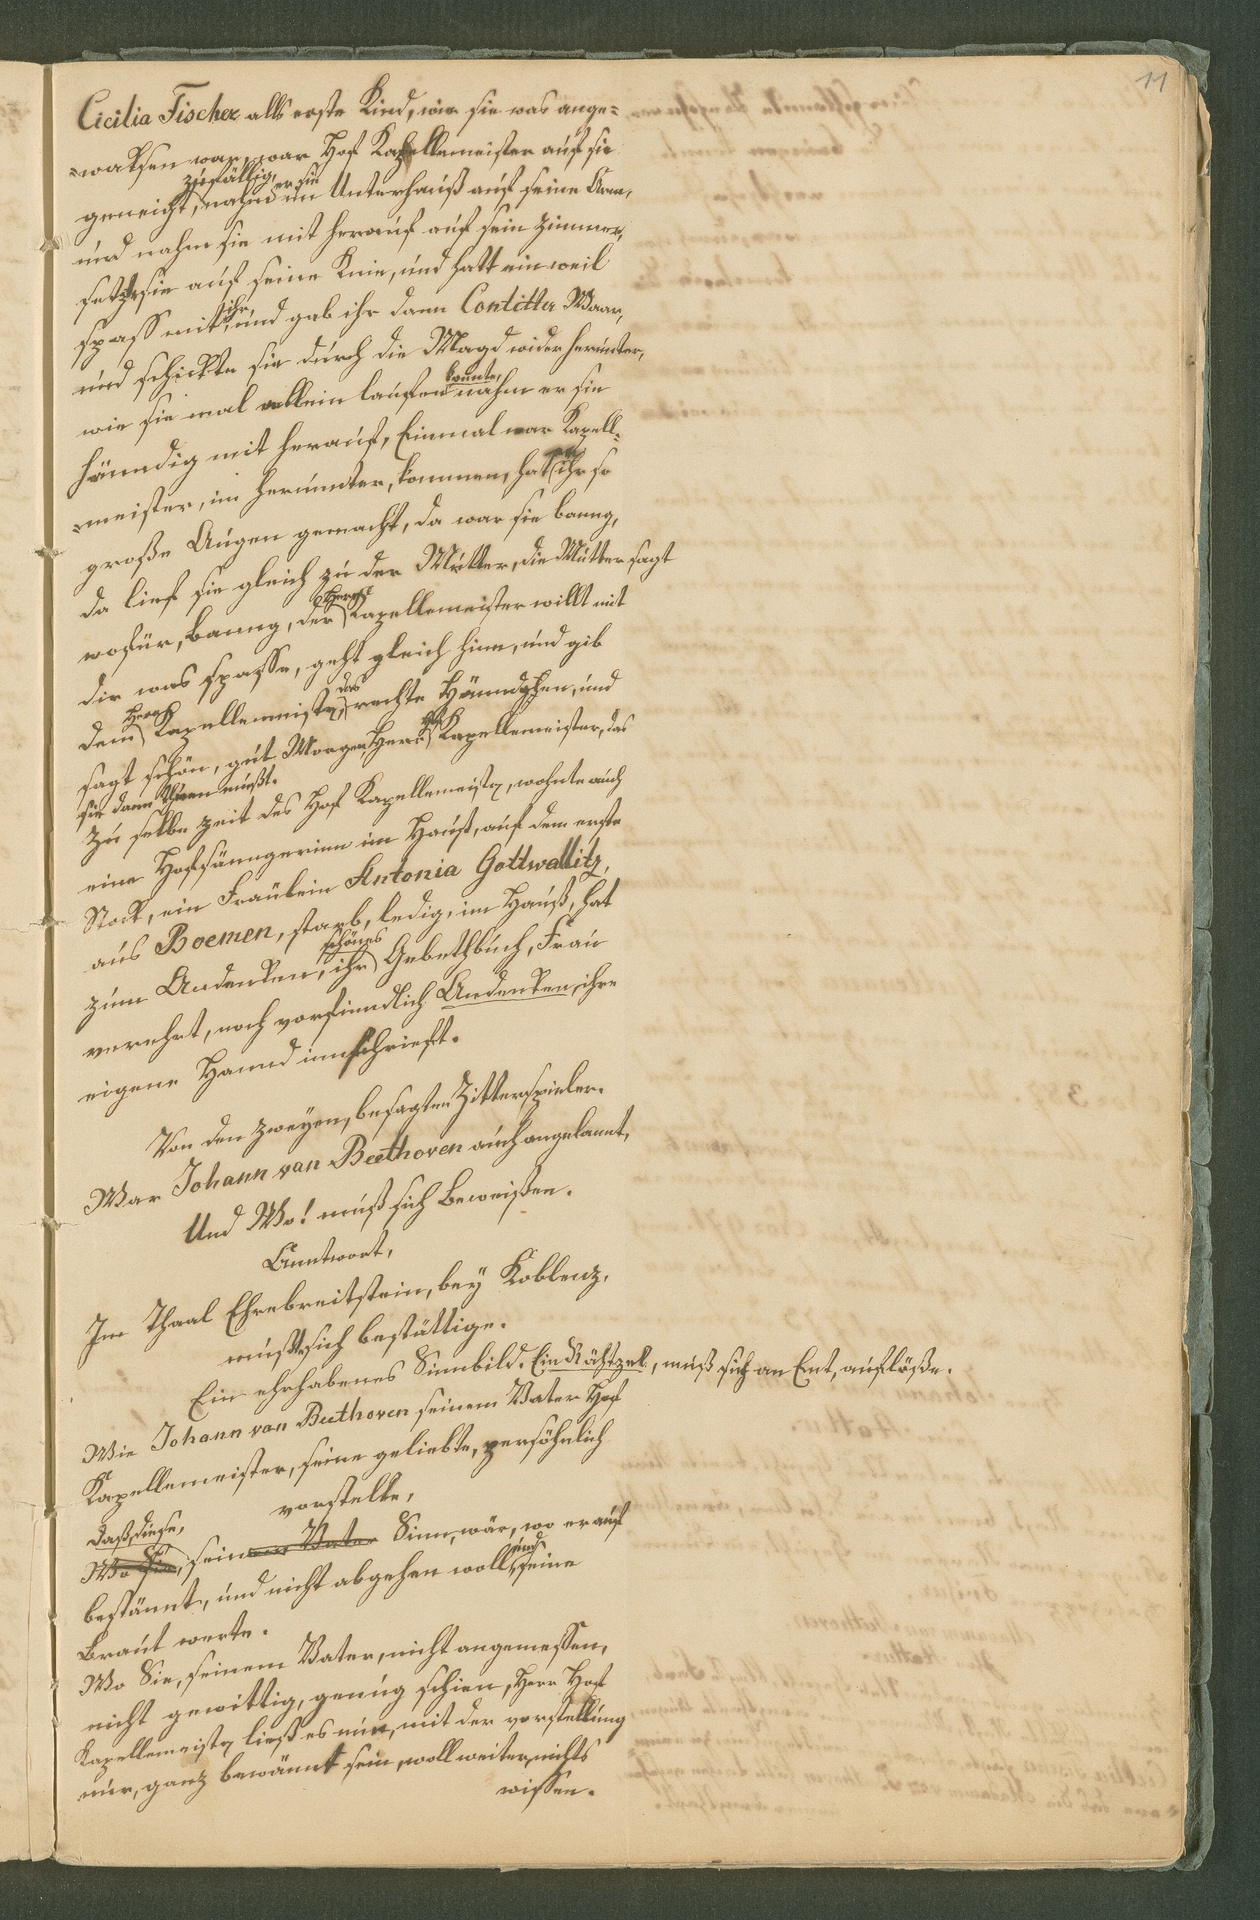 11
Cicilia Fischer alls erste Kind, wie sie was ange=
=waksen war, war Hof Kapellemeister auf sie
geneigt, zufällig, nahm er sie im Unterhauß auf seine Arm,
und nahm sie mit herauf auf sein zimmer,
setzt sie auf seine Knie, und hatt ein weil
spass mit ihr, und gab ihr dann Contitter Waar,
und schickte sie durch die Magd wider herunter,
wie sie mal allein laufen konnte, nahm er sie
hänndig mit herauf, Einmal war Kapell=
=meister, im herunnter, kommen, hat ihr so
große Augen gemacht, da war sie banng,
da lief sie gleich zu der Mutter, die Mutter sagt
wofür, banng, der Herr Kapellemeister willt mit
dir was spasse, geht gleich hinn, und gib
dem Herr Kapellemeister, das rechte Hänndchen, und
sagt schön, gut Morgen, Herr Hof Kapellemeister, das
sie dann thuen mußt.
Zu selbe zeit des Hof Kapellemeister, wohnte auch
eine Hofsänngerinn im Hauß, auf dem erste
Stock, ein Fraülein Antonia Gottwallitz,
aus Boemen, starb, ledig, im Hauß, hat
zum Andenken, ihr schönes Gebethbuch, Frau
verehrt, noch vorfinndlich Andenken, ihre
eigene Hannd innschrieft.
Von den zweyen, besagten Zitterspieler.
War Johann van Beethoven auch angelannt,
Und Wo! muß sich Beweißen.
Anntwort,
Im Thaal Ehrebreitstein, bey Koblenz,
mußt sich bestättige.
Ein ehrhabenes Sinnbild. Ein Rähtzel, muß sich an Ent, auflöße.
Wie Johann van Beethoven seinem Vater Hof
Kapellemeister, seine geliebte, persöhnlich
vorstellte,
daß, diese,
Wo Sie, seinem Vater Sinn, wär, wo er auf
bestännt, und nicht abgehen woll, und seine
Braut werte.
Wo Sie, seinem Vater, nicht angemessen,
nicht gewittig, genug schien, Herr Hof
Kapellemeister ließ es nun, mit der vorstellung
nur, ganz bewännt sein, woll weiter, nichts
wissen.